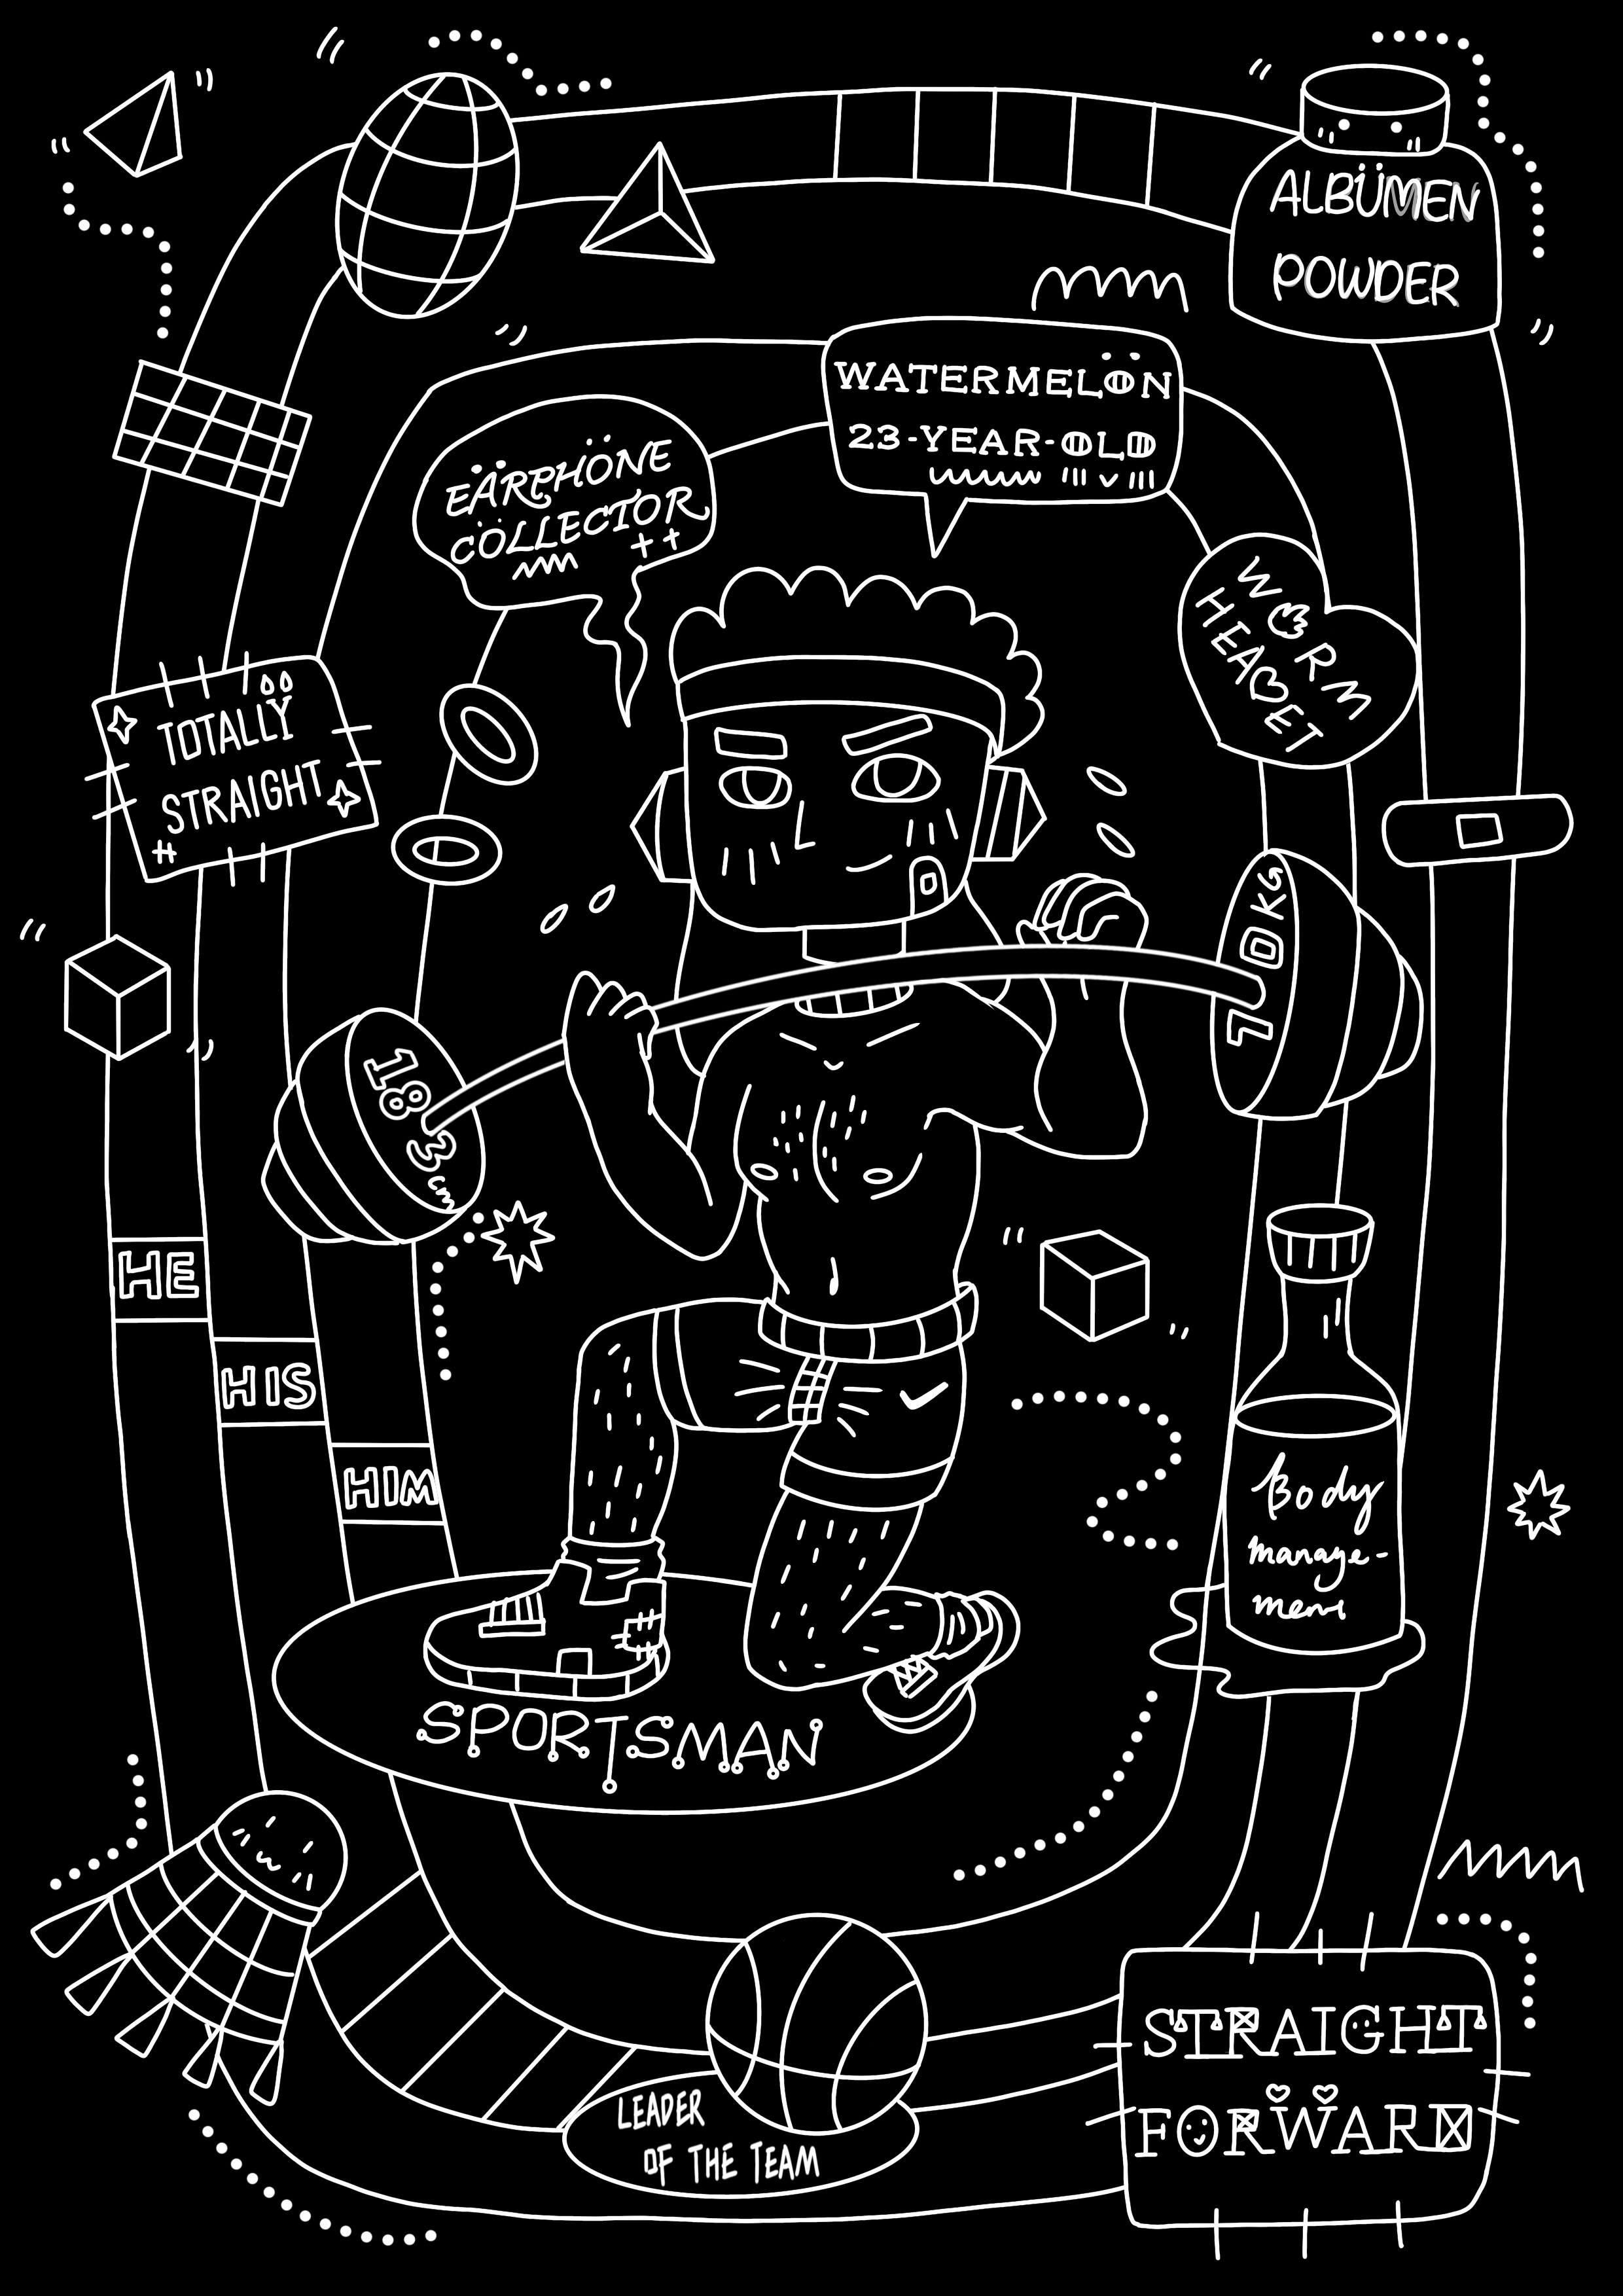 ALBÜMEN
POWDER
WATERMELÖN
23-YEAR-OLD
EÄRPHÖNE
CÖLLECTOR
++
WORM
HEABET
TOTALLY
STRAIGHT
#
70KG
183cm
HE
HIS
HIM
Body
manage-
ment
SPORTSMAN
LEADER
OF THE TEAM
STRAIGHT
FORWARD